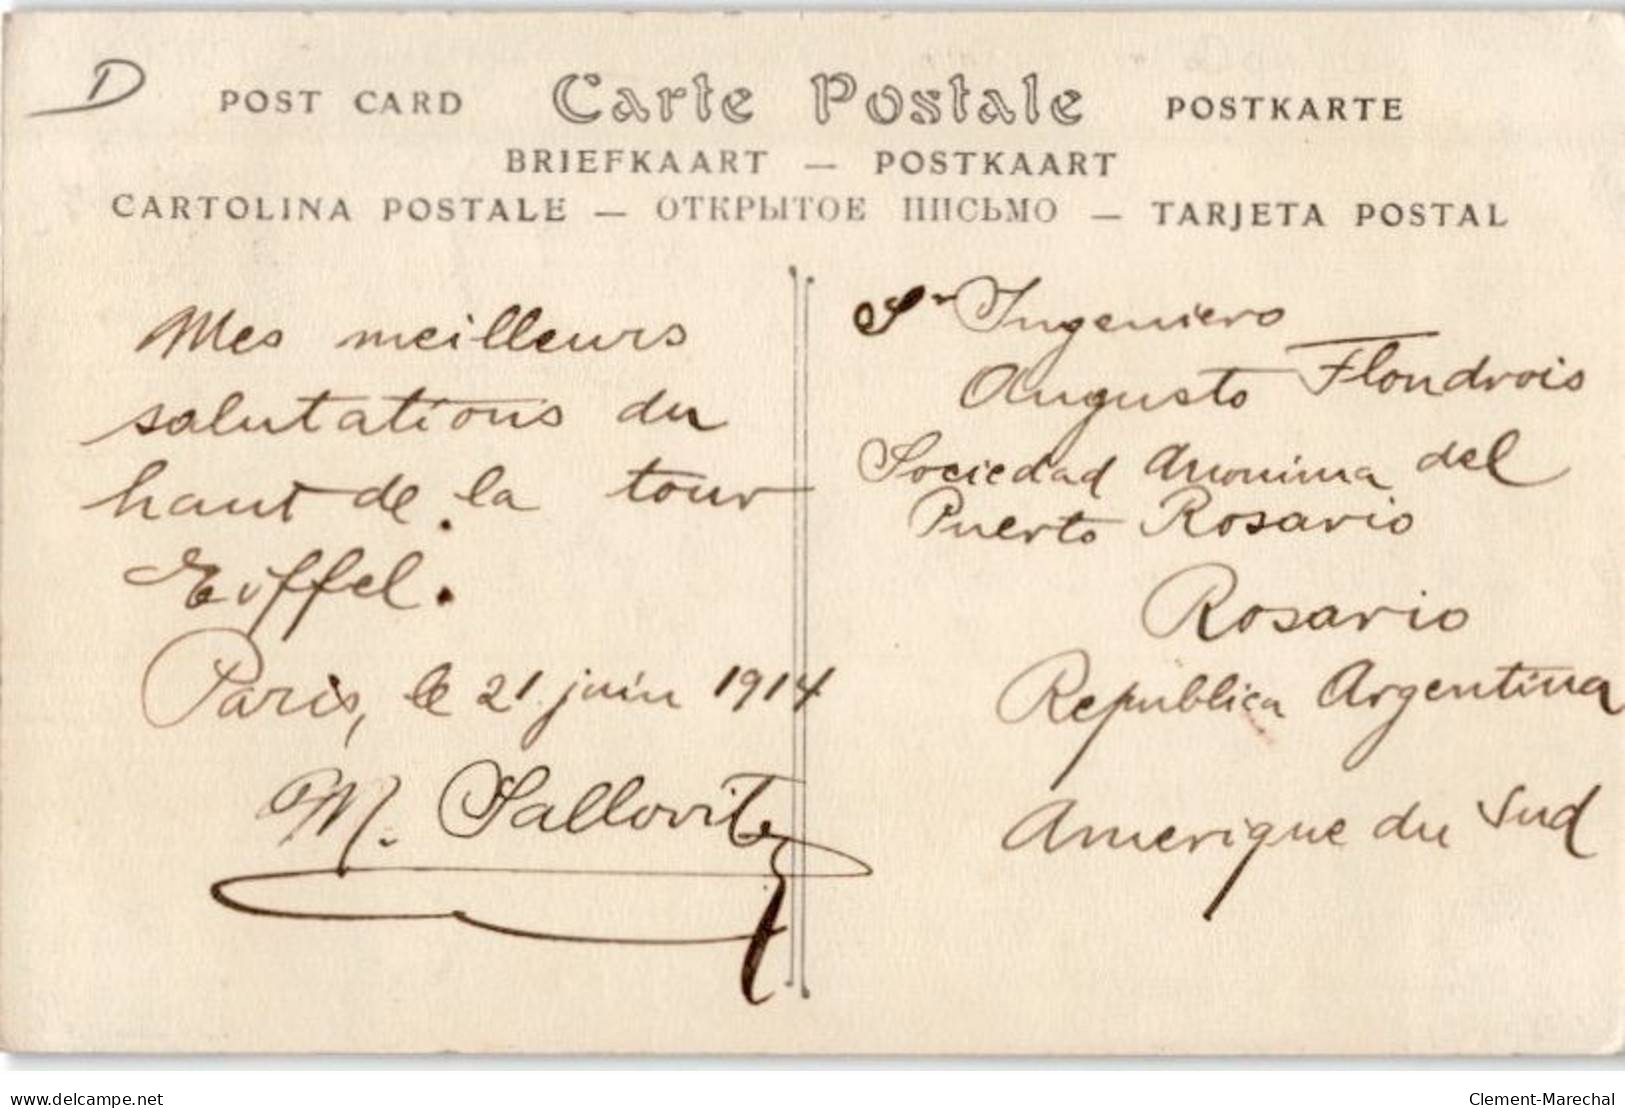 D
POST CARD Carte Postale POSTKARTE
BRIEFKAART — POSTKAART
CARTOLINA POSTALE — ОТКРЫТОЕ ПИСЬМО — TARJETA POSTAL
Mes meilleurs
salutations du
haut de la tour
Eiffel.
Paris, le 21 juin 1914
M. Sallovitz
Sr Ingeniero
Augusto Flondrois
Sociedad Anonima del
Puerto Rosario
Rosario
República Argentina
Amerique du Sud
www.delcampe.net
Clement-Marechal